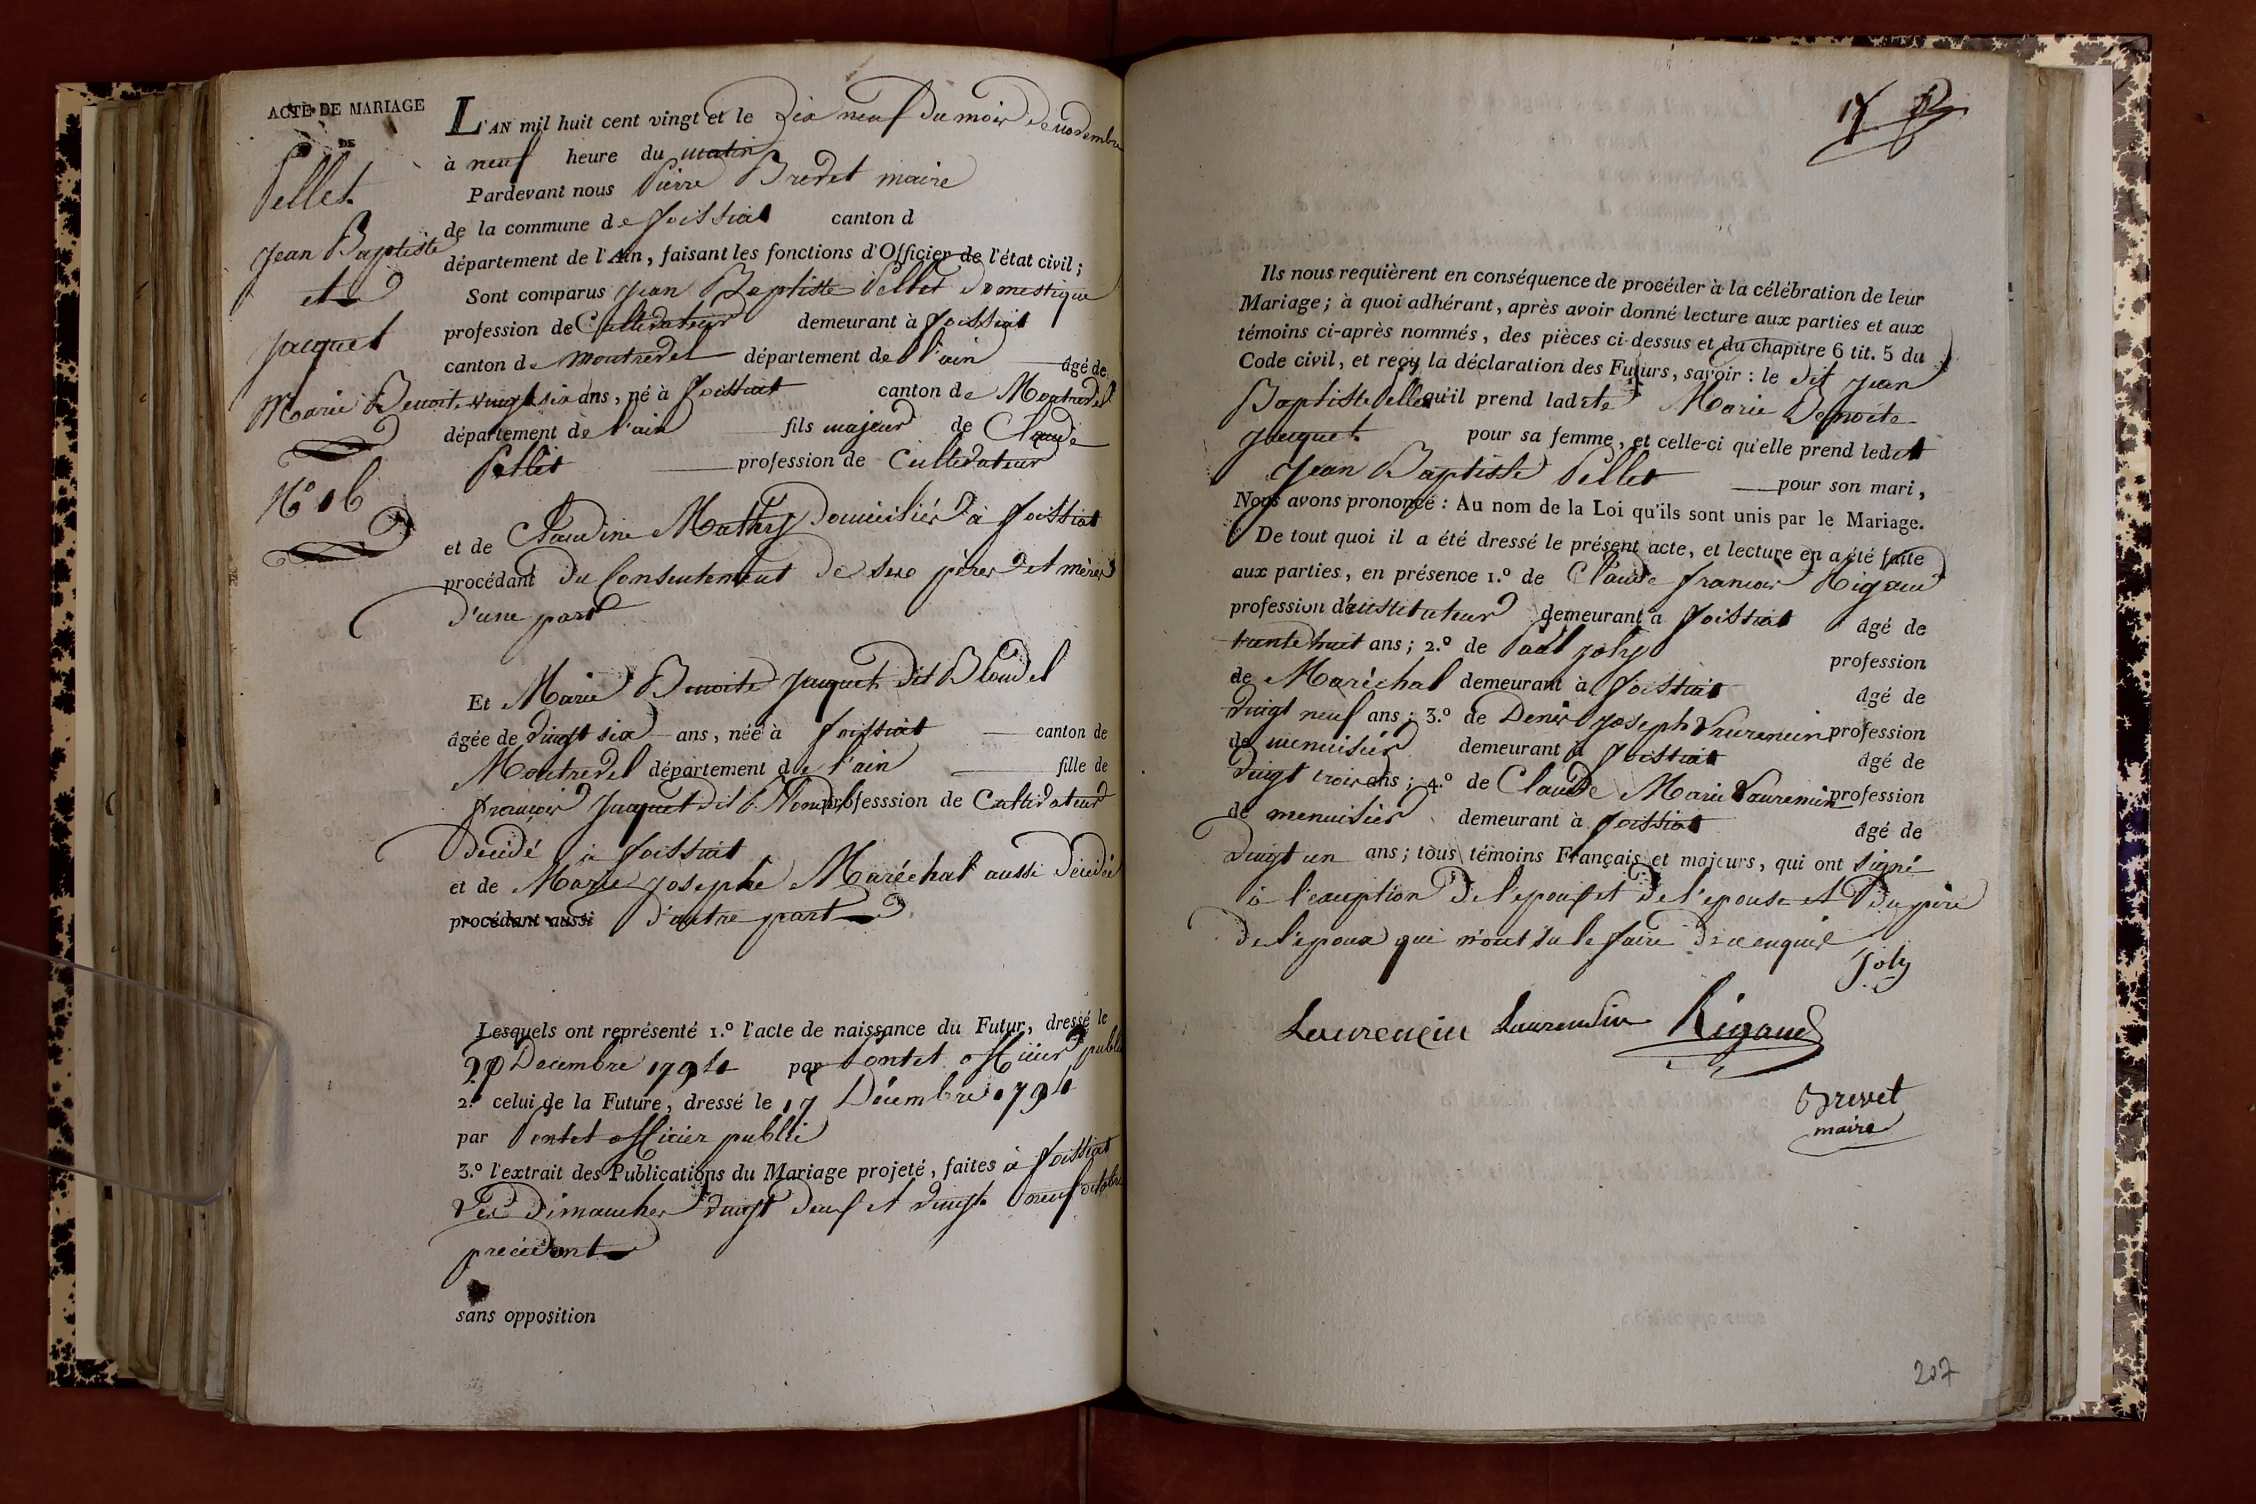 ACTE DE MARIAGE
DE
Pellet
Jean Baptiste
et
Jacquet
Marie Benoite
N.º 16
L'AN mil huit cent vingt et le Dix neuf du mois de novembre
à neuf heure du matin
Pardevant nous Pierre Brevet maire
de la commune de foissiat canton d
département de l'Ain, faisant les fonctions d'Officier de l'état civil;
Sont comparus Jean Baptiste Pellet Domestique
profession de Cultivateur demeurant à foissiat
canton de montrevel département de l'ain âgé de
vingt six ans, né à foissiat canton de Montrevel
département de l'ain fils majeur de Claude
Pellet profession de Cultivateur
et de Claudine Mathy Domiciliés à foissiat
procédant du Consentement de ses pères et mères
d'une part
Et Marie Benoite Jacquet dit Blondel
âgée de vingt six ans, née à foissiat canton de
Montrevel département de l'ain fille de
françois Jacquet dit Blondel professsion de Cultivateur
décédé à foissiat
et de Marie Josephe Maréchal aussi décédée
procédant aussi d'autre part
Lesquels ont représenté 1.º l'acte de naissance du Futur, dressé le
Decembre 1794 par Pontet officier public
2.º celui de la Future, dressé le 17 Décembre 1794
par Pontet officier public
3.º l'extrait des Publications du Mariage projeté, faites à foissiat
les Dimanches vingt deux et vingt neuf octobre
precedent
sans opposition
Ils nous requièrent en conséquence de procéder à la célébration de leur
Mariage; à quoi adhérant, après avoir donné lecture aux parties et aux
témoins ci-après nommés, des pièces ci-dessus et du chapitre 6 tit. 5 du
Code civil, et reçu la déclaration des Futurs, savoir : le dit Jean
Baptiste Pellet qu'il prend ladite Marie Benoite
Jacquet pour sa femme, et celle-ci qu'elle prend ledit
Jean Baptiste Pellet pour son mari,
Nous avons prononcé : Au nom de la Loi qu'ils sont unis par le Mariage.
De tout quoi il a été dressé le présent acte, et lecture en a été faite
aux parties, en présence 1.º de Claude françois Rigaud
profession d'instituteur demeurant à foissiat âgé de
trente huit ans; 2.º de Paul Joly profession
de Maréchal demeurant à foissiat âgé de
vingt neuf ans; 3.º de Denis Joseph Laurencin profession
de menuisier demeurant à foissiat âgé de
vingt trois ans; 4.º de Claude Marie Laurencin profession
de menuisier demeurant à foissiat âgé de
vingt un ans; tous témoins Français et majeurs, qui ont signé
à l'exception de l'epoux et de l'epouse et du père
de l'epoux qui n'ont su le faire de ce enquis
Joly
Laurencin Laurencin Rigaud
Brevet
maire
207